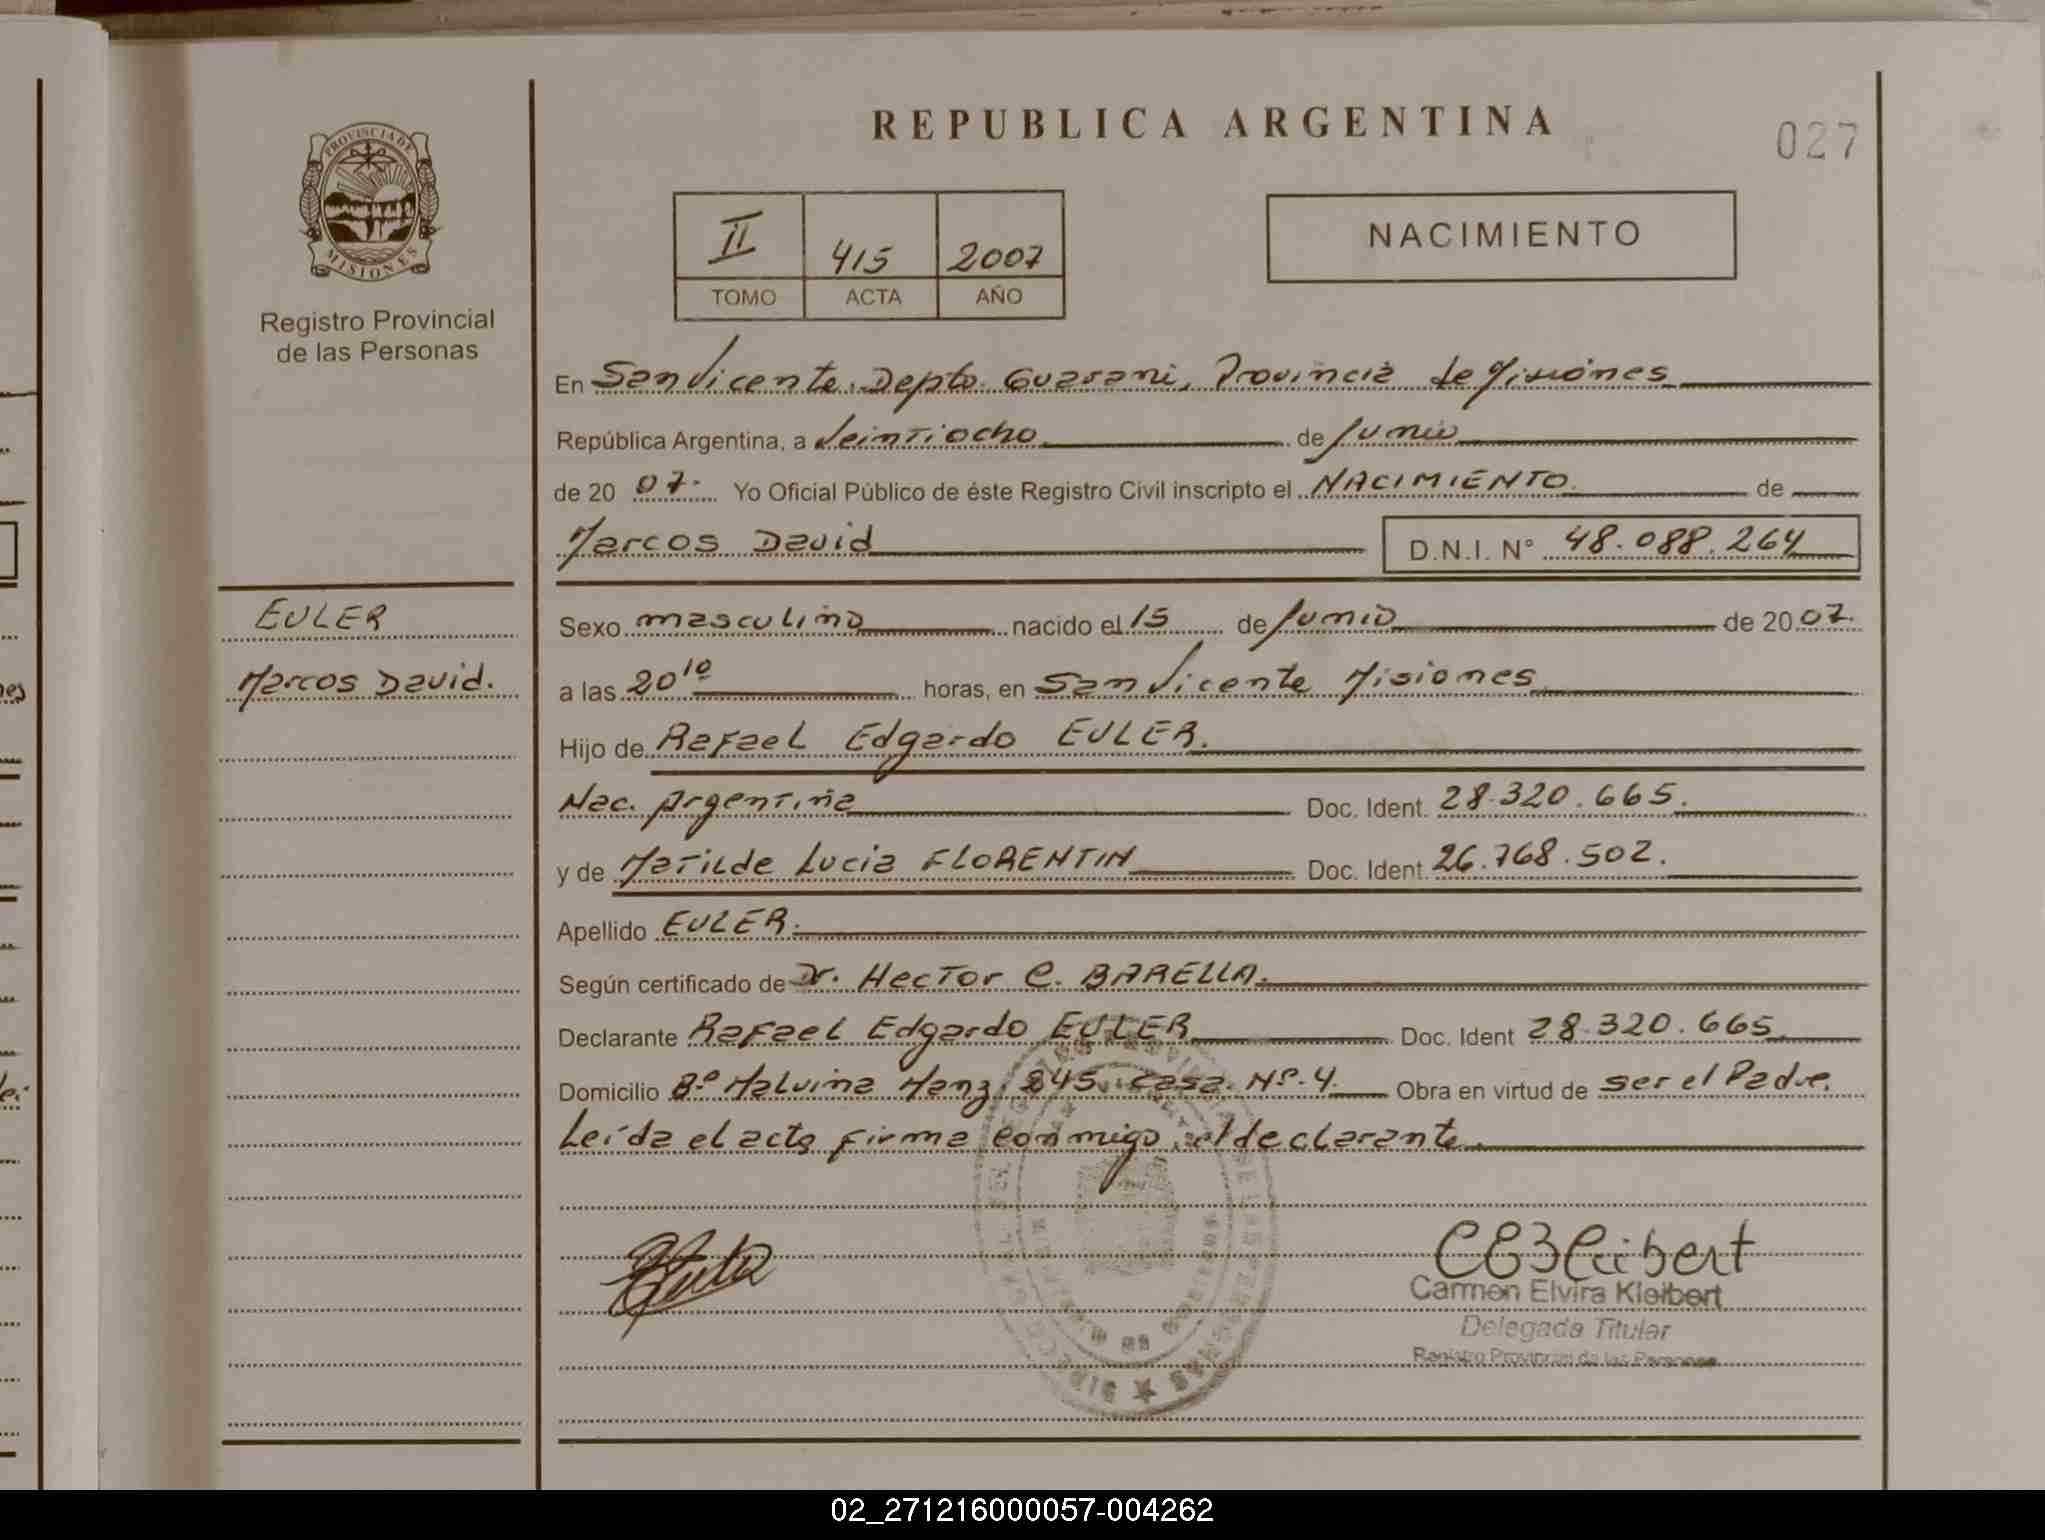 REPUBLICA ARGENTINA
027
PROVINCIA DE
MISIONES
Registro Provincial
de las Personas
II 415 2007
TOMO ACTA AÑO
NACIMIENTO
En San Vicente, Depto. Guarani, Provincia de Misiones
República Argentina, a Veintiocho de Junio
de 20 07. Yo Oficial Público de éste Registro Civil inscripto el NACIMIENTO de
Marcos David D.N.I. N° 48.088.264
EULER
Marcos David.
Sexo masculino nacido el 15 de Junio de 20 07.
a las 20 10 horas, en San Vicente Misiones
Hijo de Rafael Edgardo EULER.
Nac. Argentina Doc. Ident. 28.320.665.
y de Matilde Lucia FLORENTIN Doc. Ident 26.768.502.
Apellido EULER.
Según certificado de Dr. Hector C. BARELLA.
Declarante Rafael Edgardo EULER Doc. Ident 28.320.665
Domicilio B.º Malvina Manz. 245 casa Nº. 4. Obra en virtud de ser el Padre.
Leída el acta firma conmigo el declarante.
Carmen Elvira Kleibert
Delegada Titular
Registro Provincial de las Personas
02_271216000057-004262